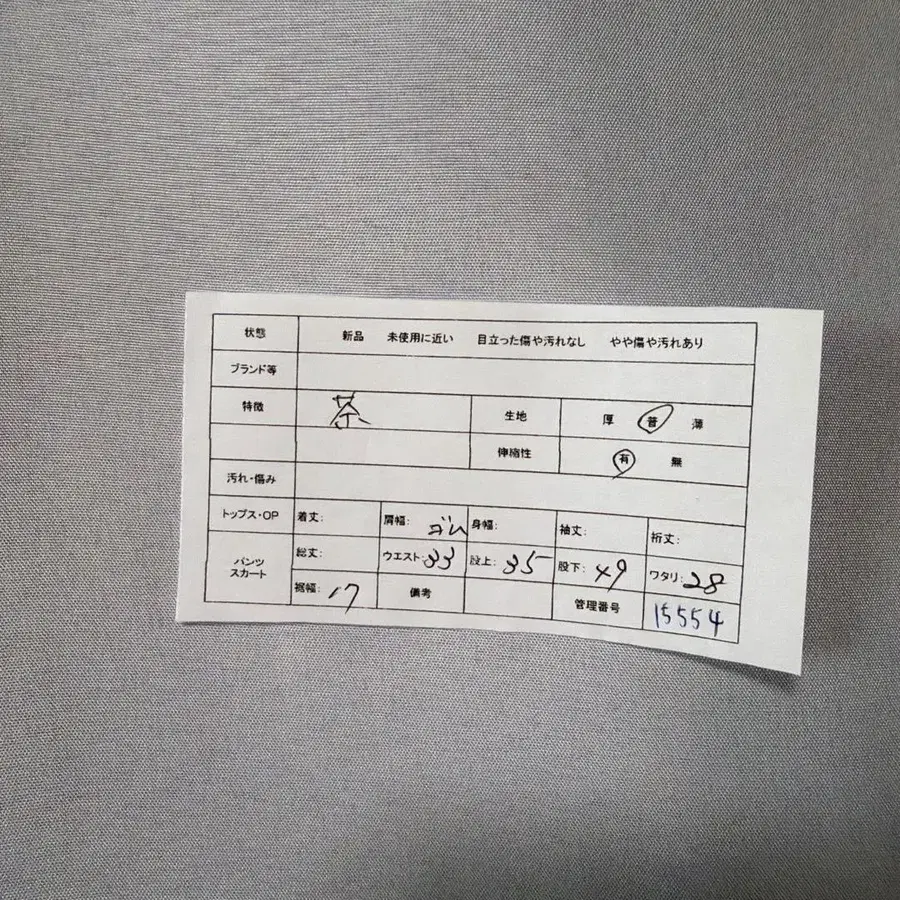 状態 新品 未使用に近い 目立った傷や汚れなし やや傷や汚れあり
ブランド等
特徴 茶 生地 厚 普 薄
伸縮性 有 無
汚れ・傷み
トップス・OP 着丈: 肩幅: 身幅: 袖丈: 裄丈:
パンツ スカート 総丈: ウエスト: ゴム 33 股上: 35 股下: 49 ワタリ: 28
裾幅: 17 備考 管理番号 15554